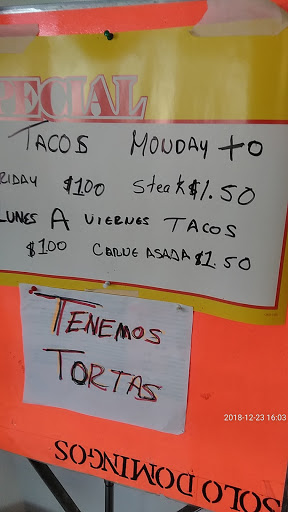 PECIAL
TACOS MONDAY TO
RIDAY $100 Steak $1.50
LUNES A VIERNES TACOS
$1.00 CARNE ASADA $1.50
TENEMOS
TORTAS
2018-12-23 16:03
SOLO DOMINGOS